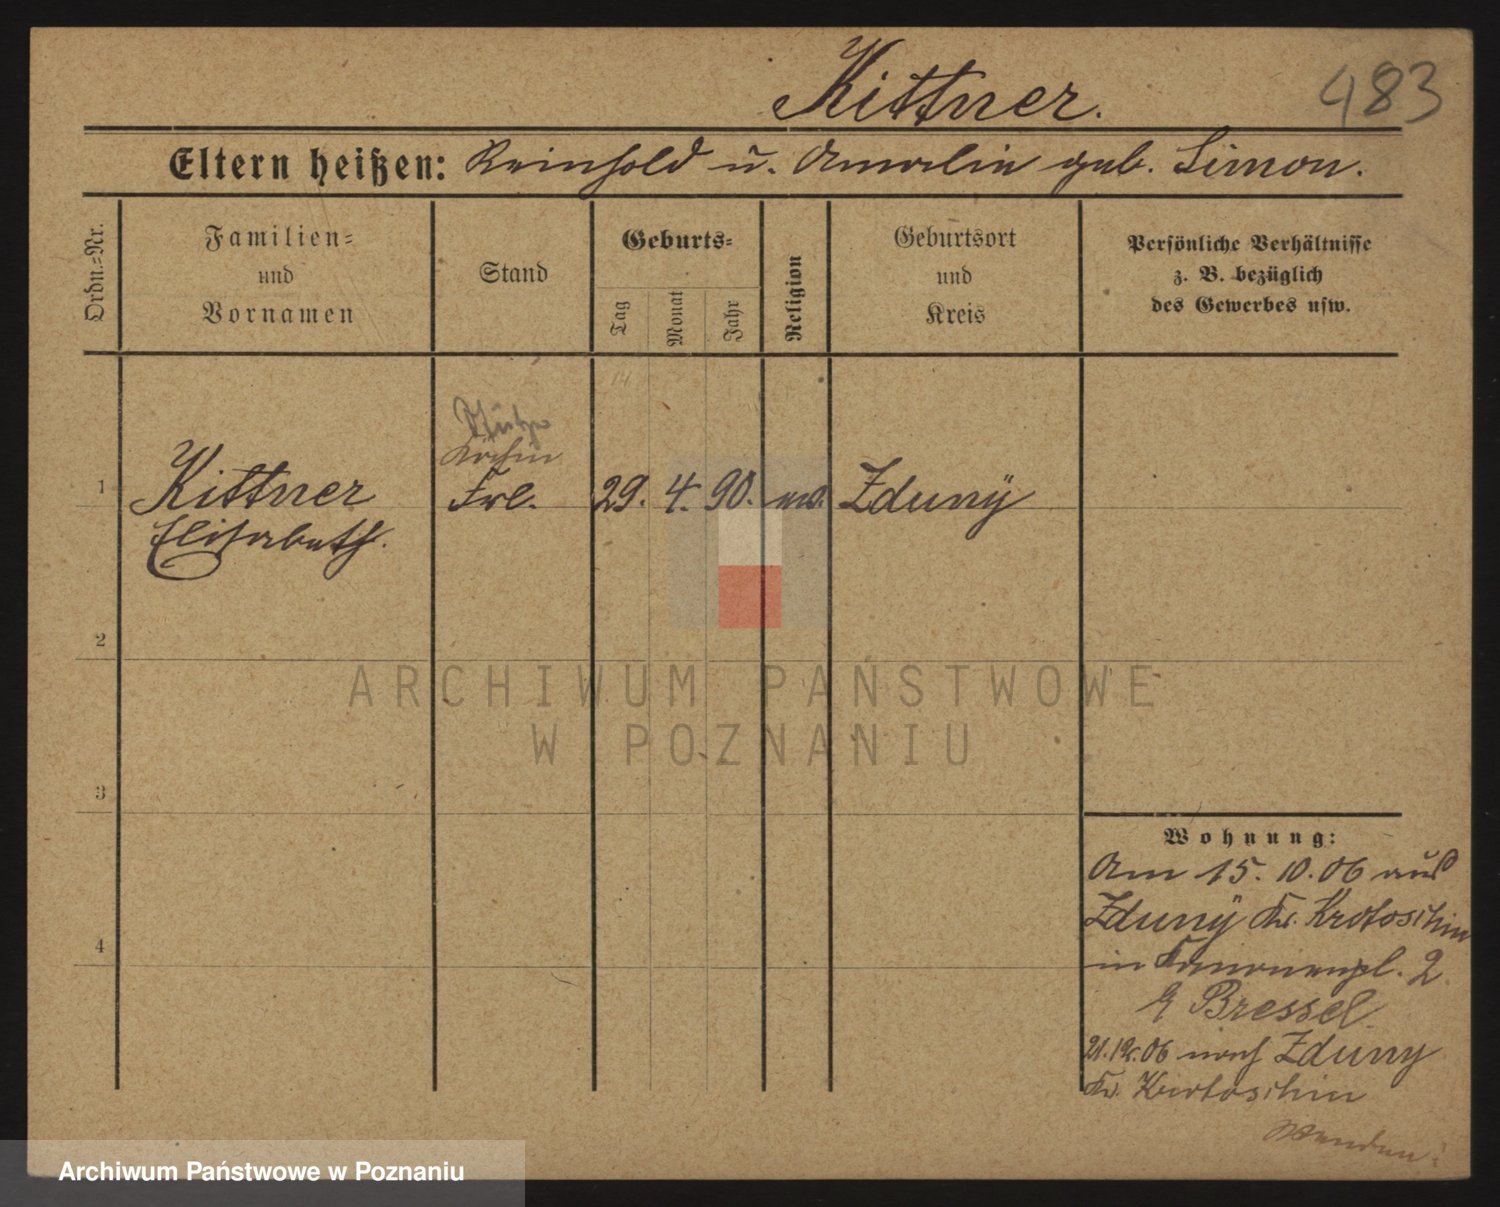 Kittner.
483
Eltern heißen: Reinhold u. Amalie geb. Simon.
Ordn.-Nr.
Familien-
und
Vornamen
Stand
Geburts-
Tag
Monat
Jahr
Religion
Geburtsort
und
Kreis
Persönliche Verhältnisse
z. B. bezüglich
des Gewerbes usw.
Stütze
Köchin
1 Kittner Frl. 29. 4. 90. ev. Zduny
Elisabeth.
2
3
4
Wohnung:
Am 15. 10. 06 aus
Zduny Kr. Krotoschin
in Kanonenpl. 2.
Bressel.
21.12.06 nach Zduny
Kr. Krotoschin
Wenden!
ARCHIWUM PAŃSTWOWE
W POZNANIU
Archiwum Państwowe w Poznaniu